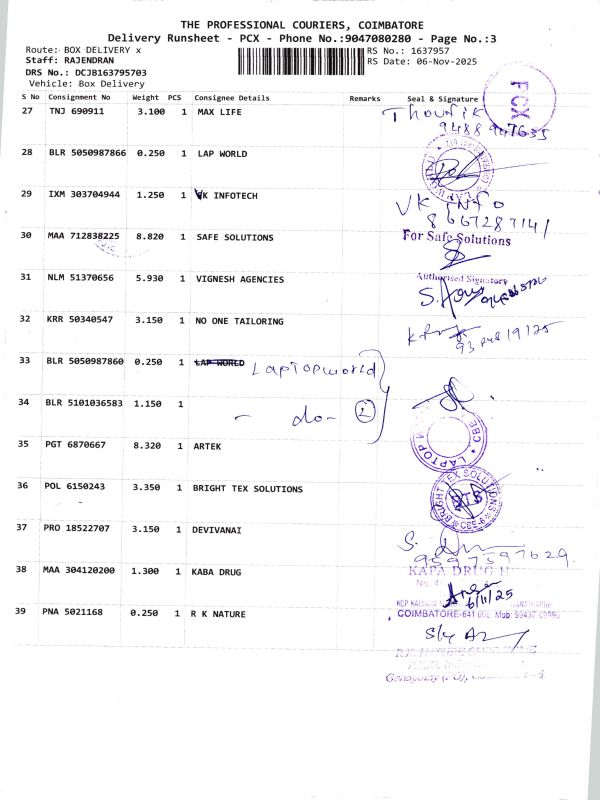 THE PROFESSIONAL COURIERS, COIMBATORE
Delivery Runsheet - PCX - Phone No.:9047080280 - Page No.:3
Route: BOX DELIVERY x
RS No.: 1637957
Staff: RAJENDRAN
RS Date: 06-Nov-2025
DRS No.: DCJB163795703
Vehicle: Box Delivery
PCX
S No Consignment No Weight PCS Consignee Details Remarks Seal & Signature
27 TNJ 690911 3.100 1 MAX LIFE
28 BLR 5050987866 0.250 1 LAP WORLD
29 IXM 303704944 1.250 1 VK INFOTECH VK INFO
8667287141
30 MAA 712838225 8.820 1 SAFE SOLUTIONS For Safe Solutions
Authorised Signatory
31 NLM 51370656 5.930 1 VIGNESH AGENCIES
32 KRR 50340547 3.150 1 NO ONE TAILORING
33 BLR 5050987860 0.250 1 LAP WORLD Laptopworld
34 BLR 5101036583 1.150 1 - do - 2
LAPTOP CBE
35 PGT 6870667 8.320 1 ARTEK
36 POL 6150243 3.350 1 BRIGHT TEX SOLUTIONS BRIGHT TEX SOLUTIONS BTS CBE-6
37 PRO 18522707 3.150 1 DEVIVANAI
9597597629
38 MAA 304120200 1.300 1 KABA DRUG KAPA DRUG
6/11/25
COIMBATORE-641 006 Mob:
39 PNA 5021168 0.250 1 R K NATURE
Ganapathy (PO),